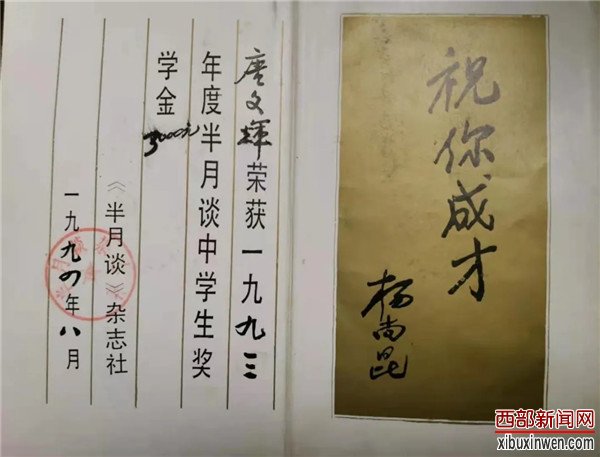 唐文辉荣获一九九三
年度半月谈中学生奖
学金3000元
《半月谈》杂志社
一九九四年八月
祝你成才
杨尚昆
西部新闻网
xibuxinwen.com